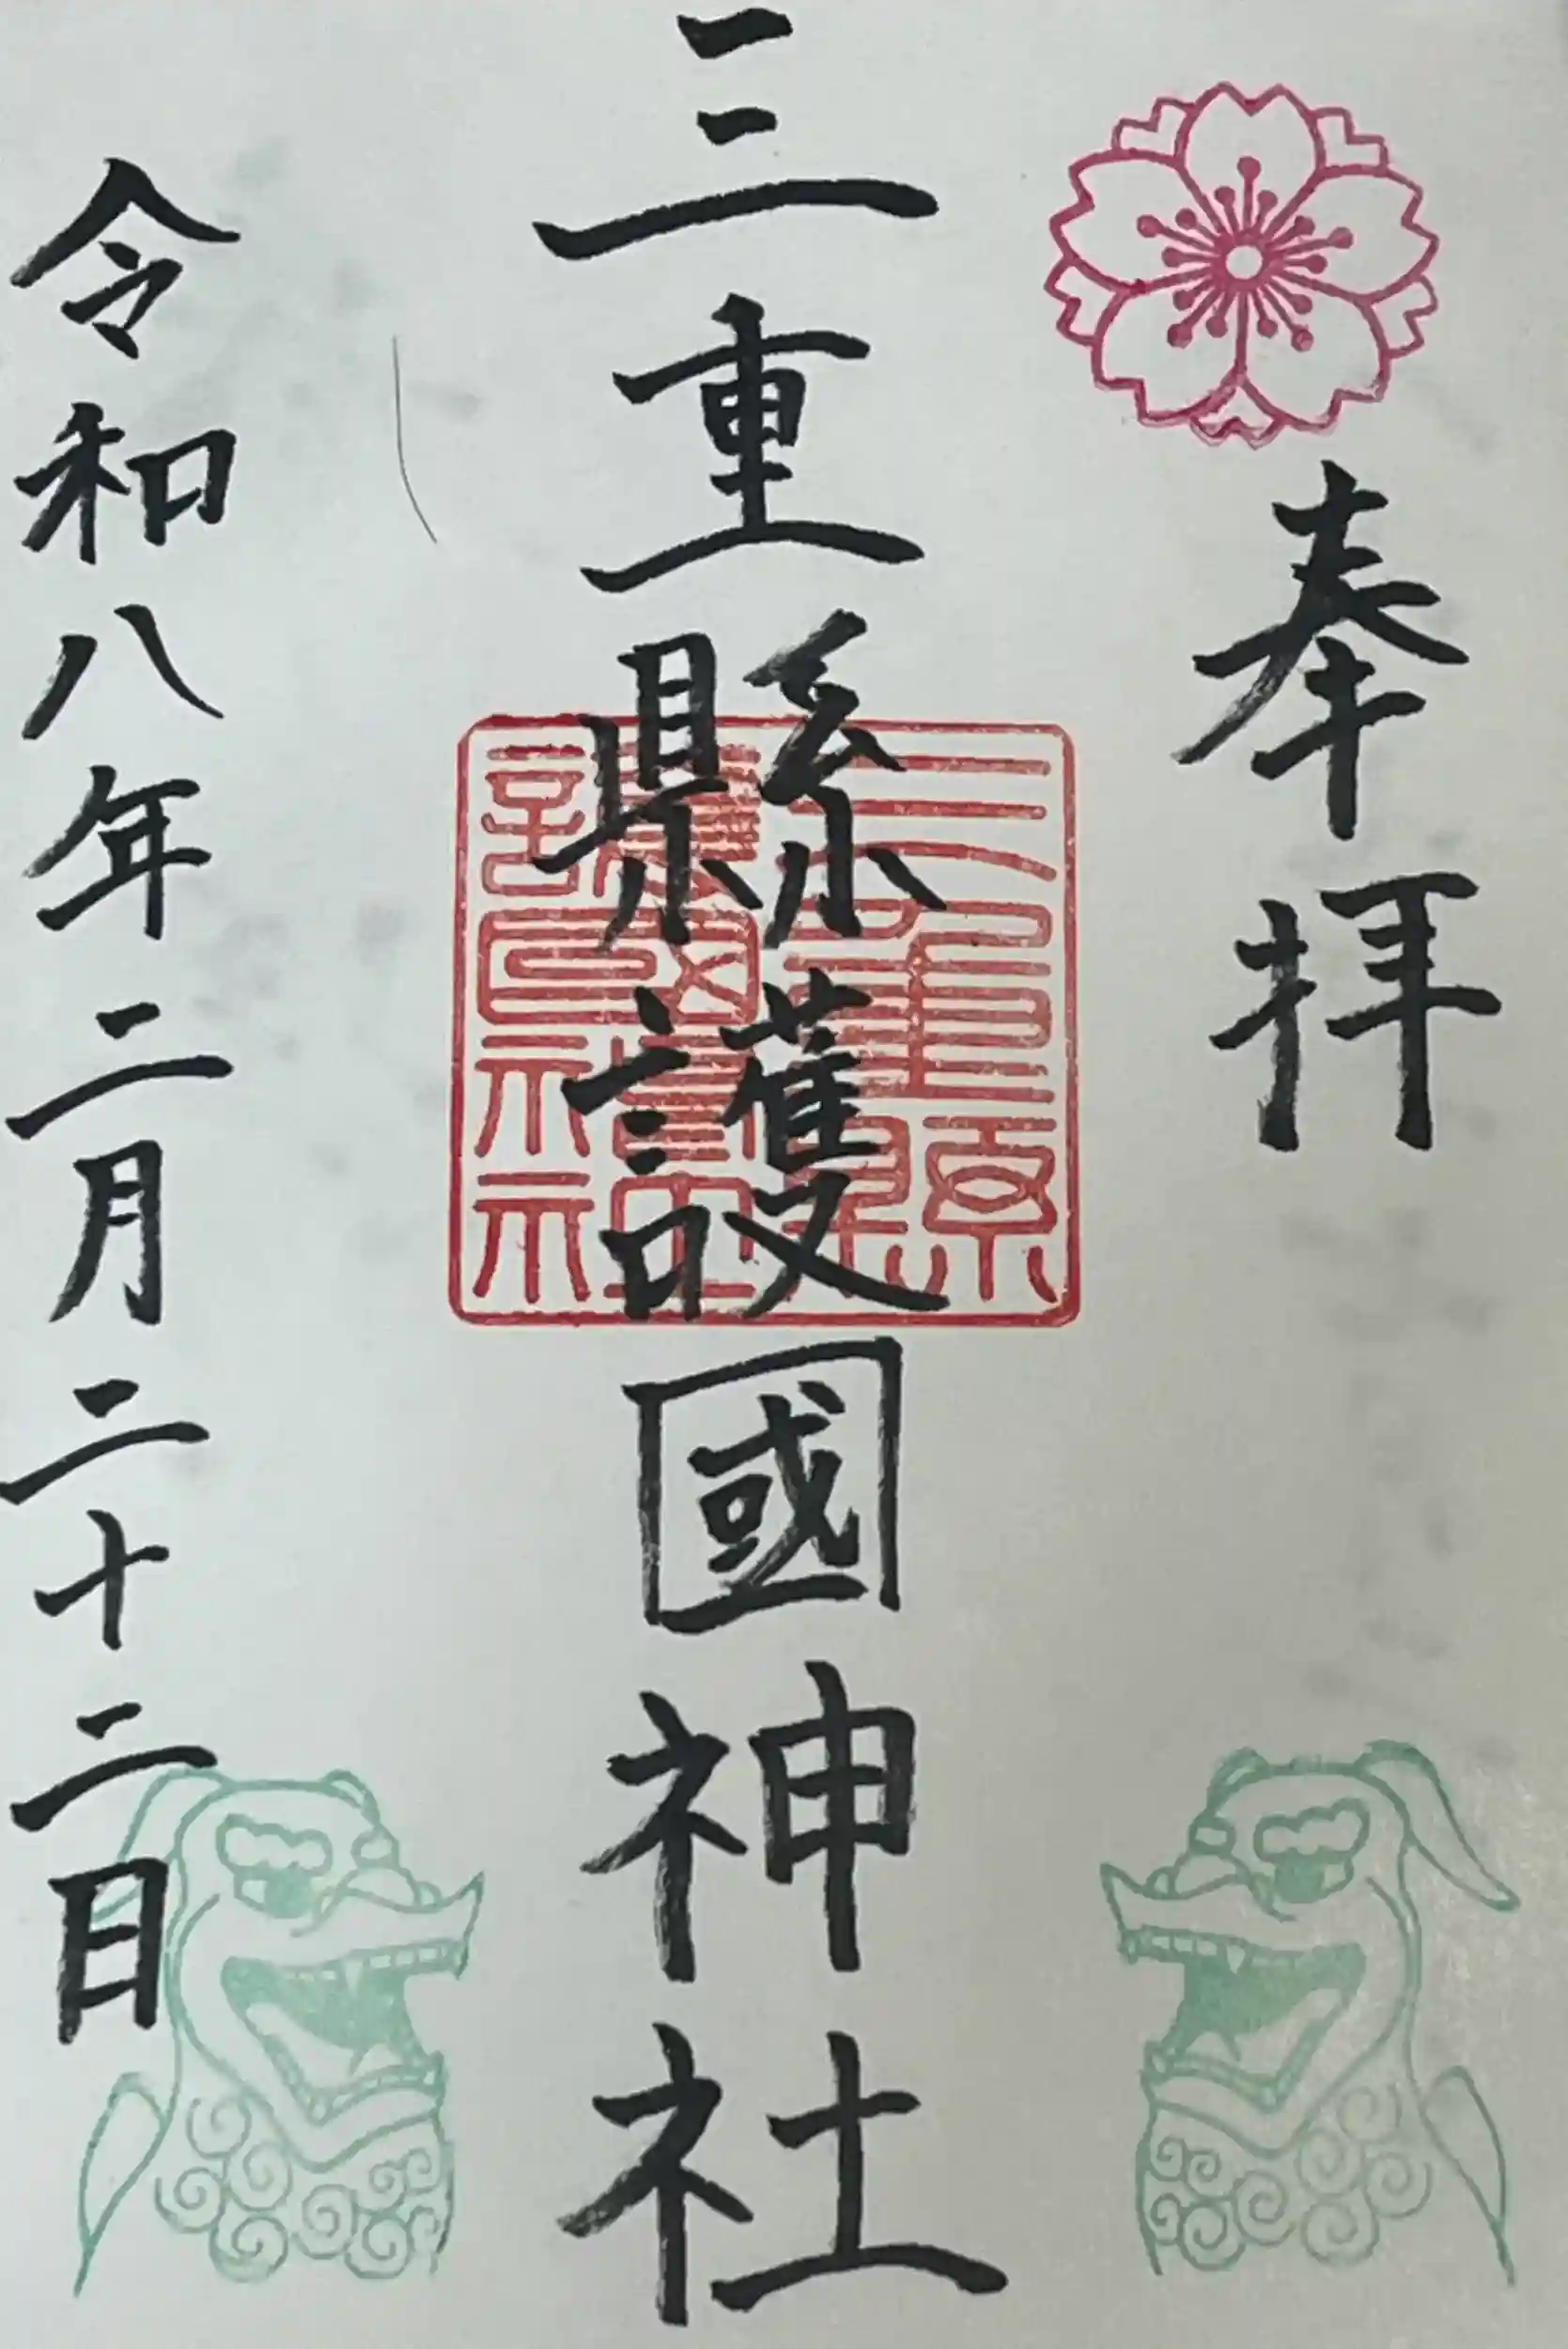 奉拝
三重縣護國神社
三重縣
護國神社
令和八年二月二十二日